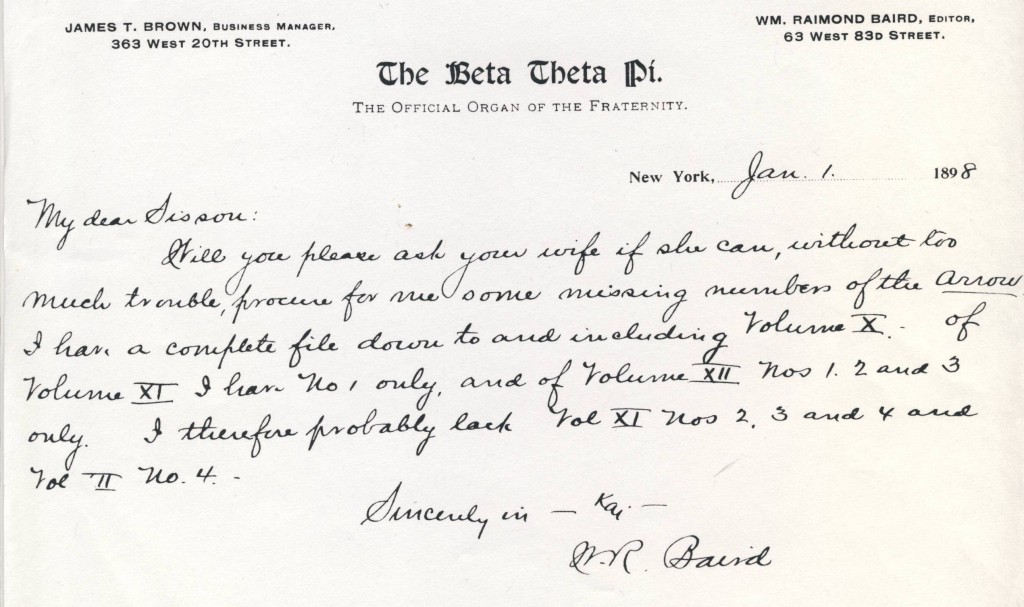 JAMES T. BROWN, BUSINESS MANAGER,
363 WEST 20TH STREET.
WM. RAIMOND BAIRD, EDITOR,
63 WEST 83D STREET.
The Beta Theta Pi.
THE OFFICIAL ORGAN OF THE FRATERNITY.
New York, Jan. 1. 1898
My dear Sisson:
Will you please ask your wife if she can, without too
much trouble, procure for me some missing numbers of the Arrow.
I have a complete file down to and including Volume X. of
Volume XI I have No 1 only, and of Volume XII Nos 1. 2 and 3
only. I therefore probably lack Vol XI Nos 2, 3 and 4 and
Vol II No. 4. -
Sincerely in - Kai -
W.R. Baird